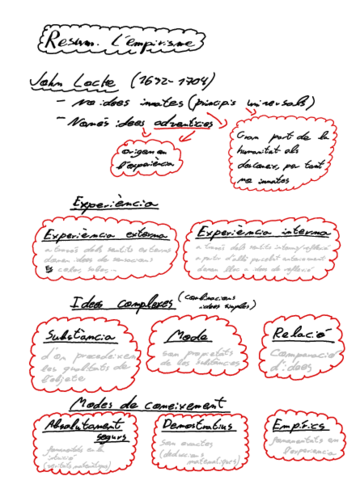 Resum. L'empirisme
John Locke (1632-1704)
- No idees innates (principis universals)
- Només idees adventícies
origen en
l'experiència
Gran part de la
humanitat els
desconeix, per tant
no innates
Experiència
Experiència externa
a través dels sentits externs
donen idees de sensacions
colors, sabors...
Experiència interna
a través dels sentits interns/reflexió
donen lloc a idees de reflexió
Idees complexes (combinacions
idees simples)
Substància
d'on procedeixen
les qualitats de
l'objecte
Mode
són propietats
de les substàncies
Relació
Comparació
d'idees
Modes de coneixement
Absolutament
segurs
fonamentats en la
intuïció
Demostratius
són exactes
(deduccions
matemàtiques)
Empírics
fonamentats en
l'experiència